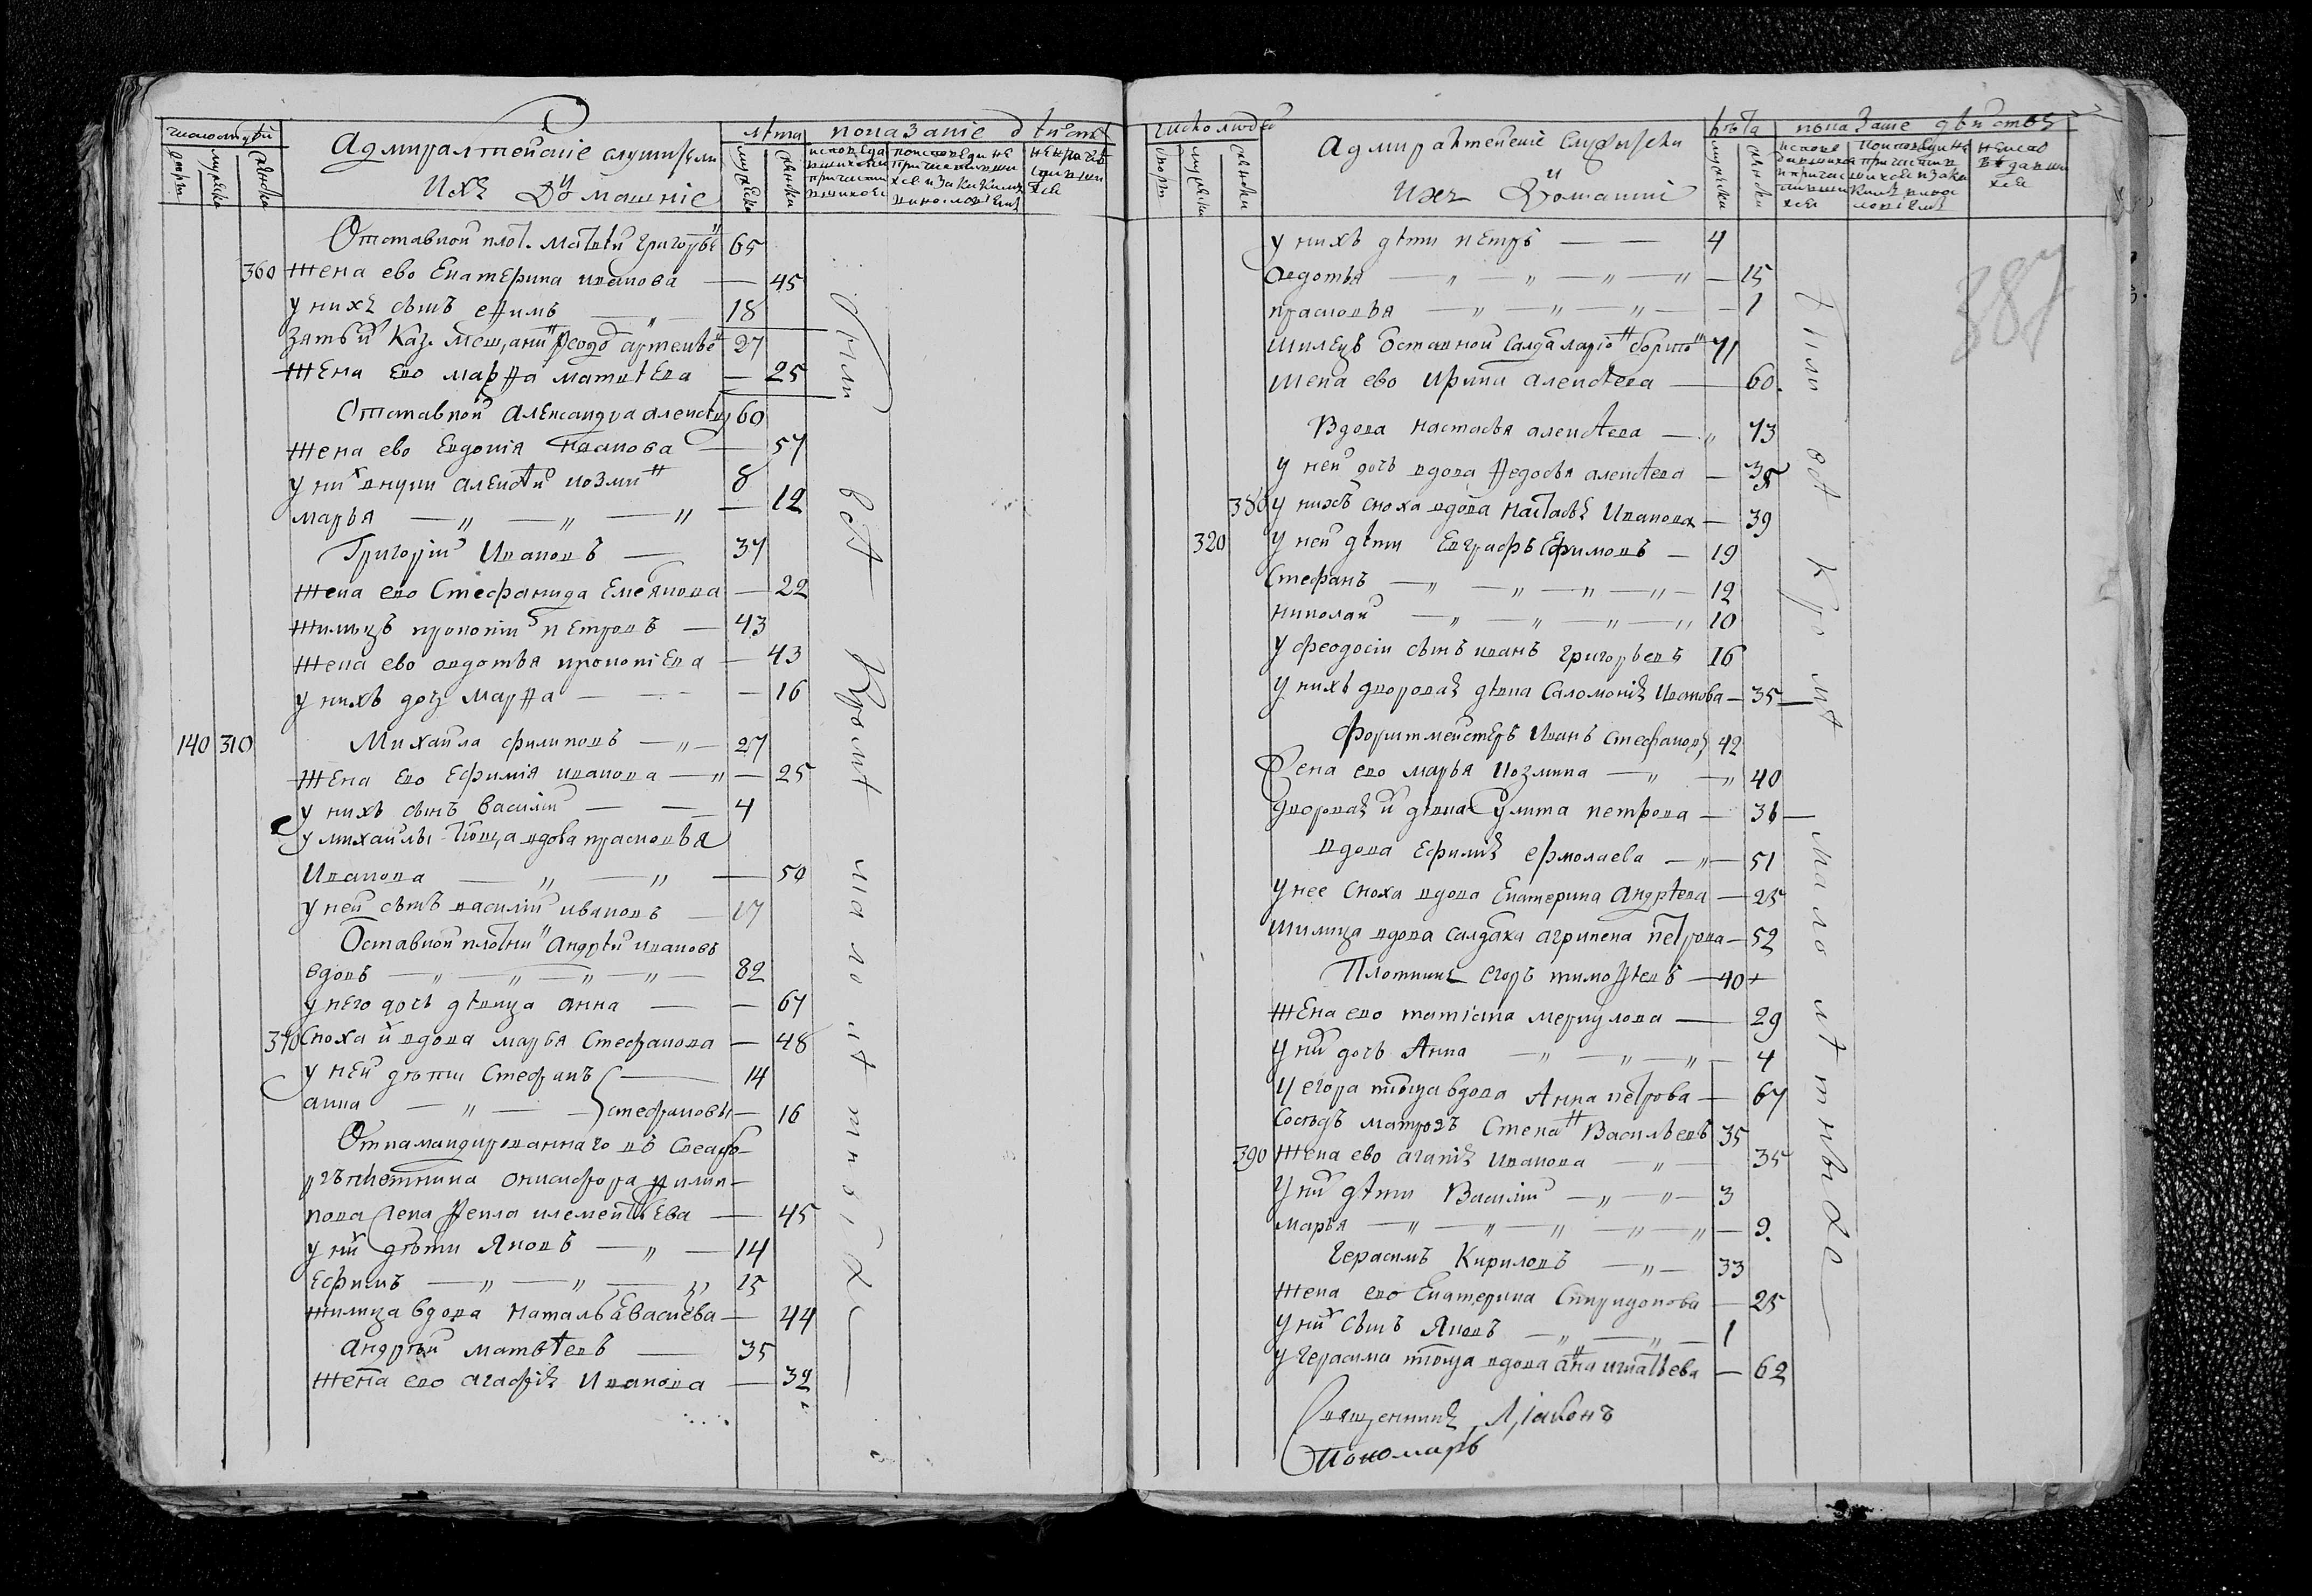 число людей
лѣта
показаніе дѣйств
Адмиралтейскіе служители
ихъ Домашніе
двор.
мужска
женска
мужска
женска
Отставной плот. Матвѣй григорье 65
360 жена ево Екатерина иванова — 45
у нихъ сынъ ефимъ — 18
зять й Каз. Мещани Феодо артемье 27
жена ево марфа матвѣева — 25
Отставной Александра алексѣ 60
жена ево Евдокія иванова — 57
у них внуки алексѣй козми 8
марья — „ — „ — „ — 12
Григорій Ивановъ — 37
жена ево Стефанида Емелянова — 22
жилецъ прокопій петровъ — 43
жена ево авдотья прокопіева — 43
у нихъ дочь марфа — 16
140 310 Михаила филиповъ — „ — 27
жена ево Ефимія иванова — „ — 25
у нихъ сынъ василій — 4
у михаилы тюща вдова прасковья
Иванова — „ — „ — 50
у ней сынъ василій ивановъ — 17
Оставной плотни Андрѣй ивановъ
вдовъ — „ — „ — „ — „ — 82
у него дочь дѣвица анна — 67
370 Сноха й вдова марья Стефанова — 48
у ней дѣти Стефанъ — 14
анна — „ — стефановы — 16
Откамандированнаго въ
плотника онисифора фили-
пова жена Фекла клементьева — 45
у ней дѣти Яковъ — „ — 14
Ефимъ — „ — „ — „ 15
жилица вдова Наталья Васиева — 44
андрѣй матвѣевъ — 35
жена ево агафія Иванова — 32
были всѣ Кромѣ малолѣтнихъ
число людей
лѣта
показаніе дѣйствъ
Адмиралтейскіе служители
ихъ Домашніи
двор.
мужска
женска
мужска
женска
387
у нихъ дѣти петръ — — 4
авдотья — „ — „ — „ — „ — 15
прасковья — „ — „ — „ — 1
жилецъ Оставной Салда ларіо борисо 71
жена ево ирина алексѣева — 60.
Вдова настасья алексѣева — „ 73
у ней дочь вдова Федосья алексѣева — 38
380 у нихъ сноха вдова настасья Иванова — 39
320 у ней дѣти Евграфъ Ефимовъ — 19
Стефанъ — „ — „ — „ — „ — 12
николай — „ — „ — „ — „ 10
у феодосіи сынъ иванъ григорьевъ 16
у нихъ дворовая дѣвка Саломонія Иванова — 35 —
Форштмейстеръ Иванъ стефановъ 42
Жена ево марья козмина — „ — „ 40
дворовая й дѣвка Улита петрова — 36 —
вдова Ефимія ермолаева — „ — 51
у нее сноха вдова Екатерина андрѣева — 25
жилица вдова салдака агрипена петрова — 52
Плотникъ егоръ тимофѣевъ — 40 +
жена ево татіана меркулова — 29
у ни дочь Анна — „ — „ — „ — 4
у егора тюща вдова Анна петрова — 67
Сосѣдъ матрозъ Степа Васильевъ 35
390 жена ево агапія Иванова — „ — 35
у ни дѣти Василій — „ — „ — 3
марья — „ — „ — „ — „ — „ — 9.
Герасимъ Кириловъ — „ — 33
жена ево Екатерина Спиридонова — 25
у них сынъ Яковъ — „ — „ — 1
у герасима тюща вдова анна игнатьева — 62
были всѣ Кромѣ малолѣтныхъ
Священникъ Діаконъ
Пономарь